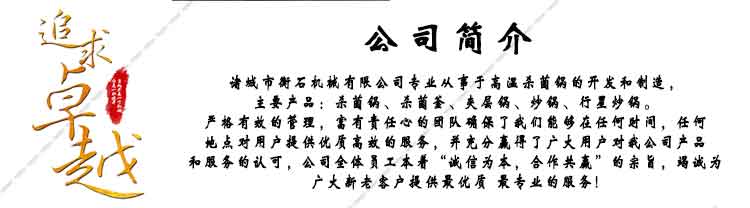 追求
卓越
公司简介
诸城市衡石机械有限公司专业从事于高温杀菌锅的开发和制造，
主要产品：杀菌锅、杀菌釜、夹层锅、炒锅、行星炒锅。
严格有效的管理，富有责任心的团队确保了我们能够在任何时间，任何
地点对用户提供优质高效的服务，并充分赢得了广大用户对我公司产品
和服务的认可，公司全体员工本着“诚信为本，合作共赢”的宗旨，竭诚为
广大新老客户提供最优质 最专业的服务！